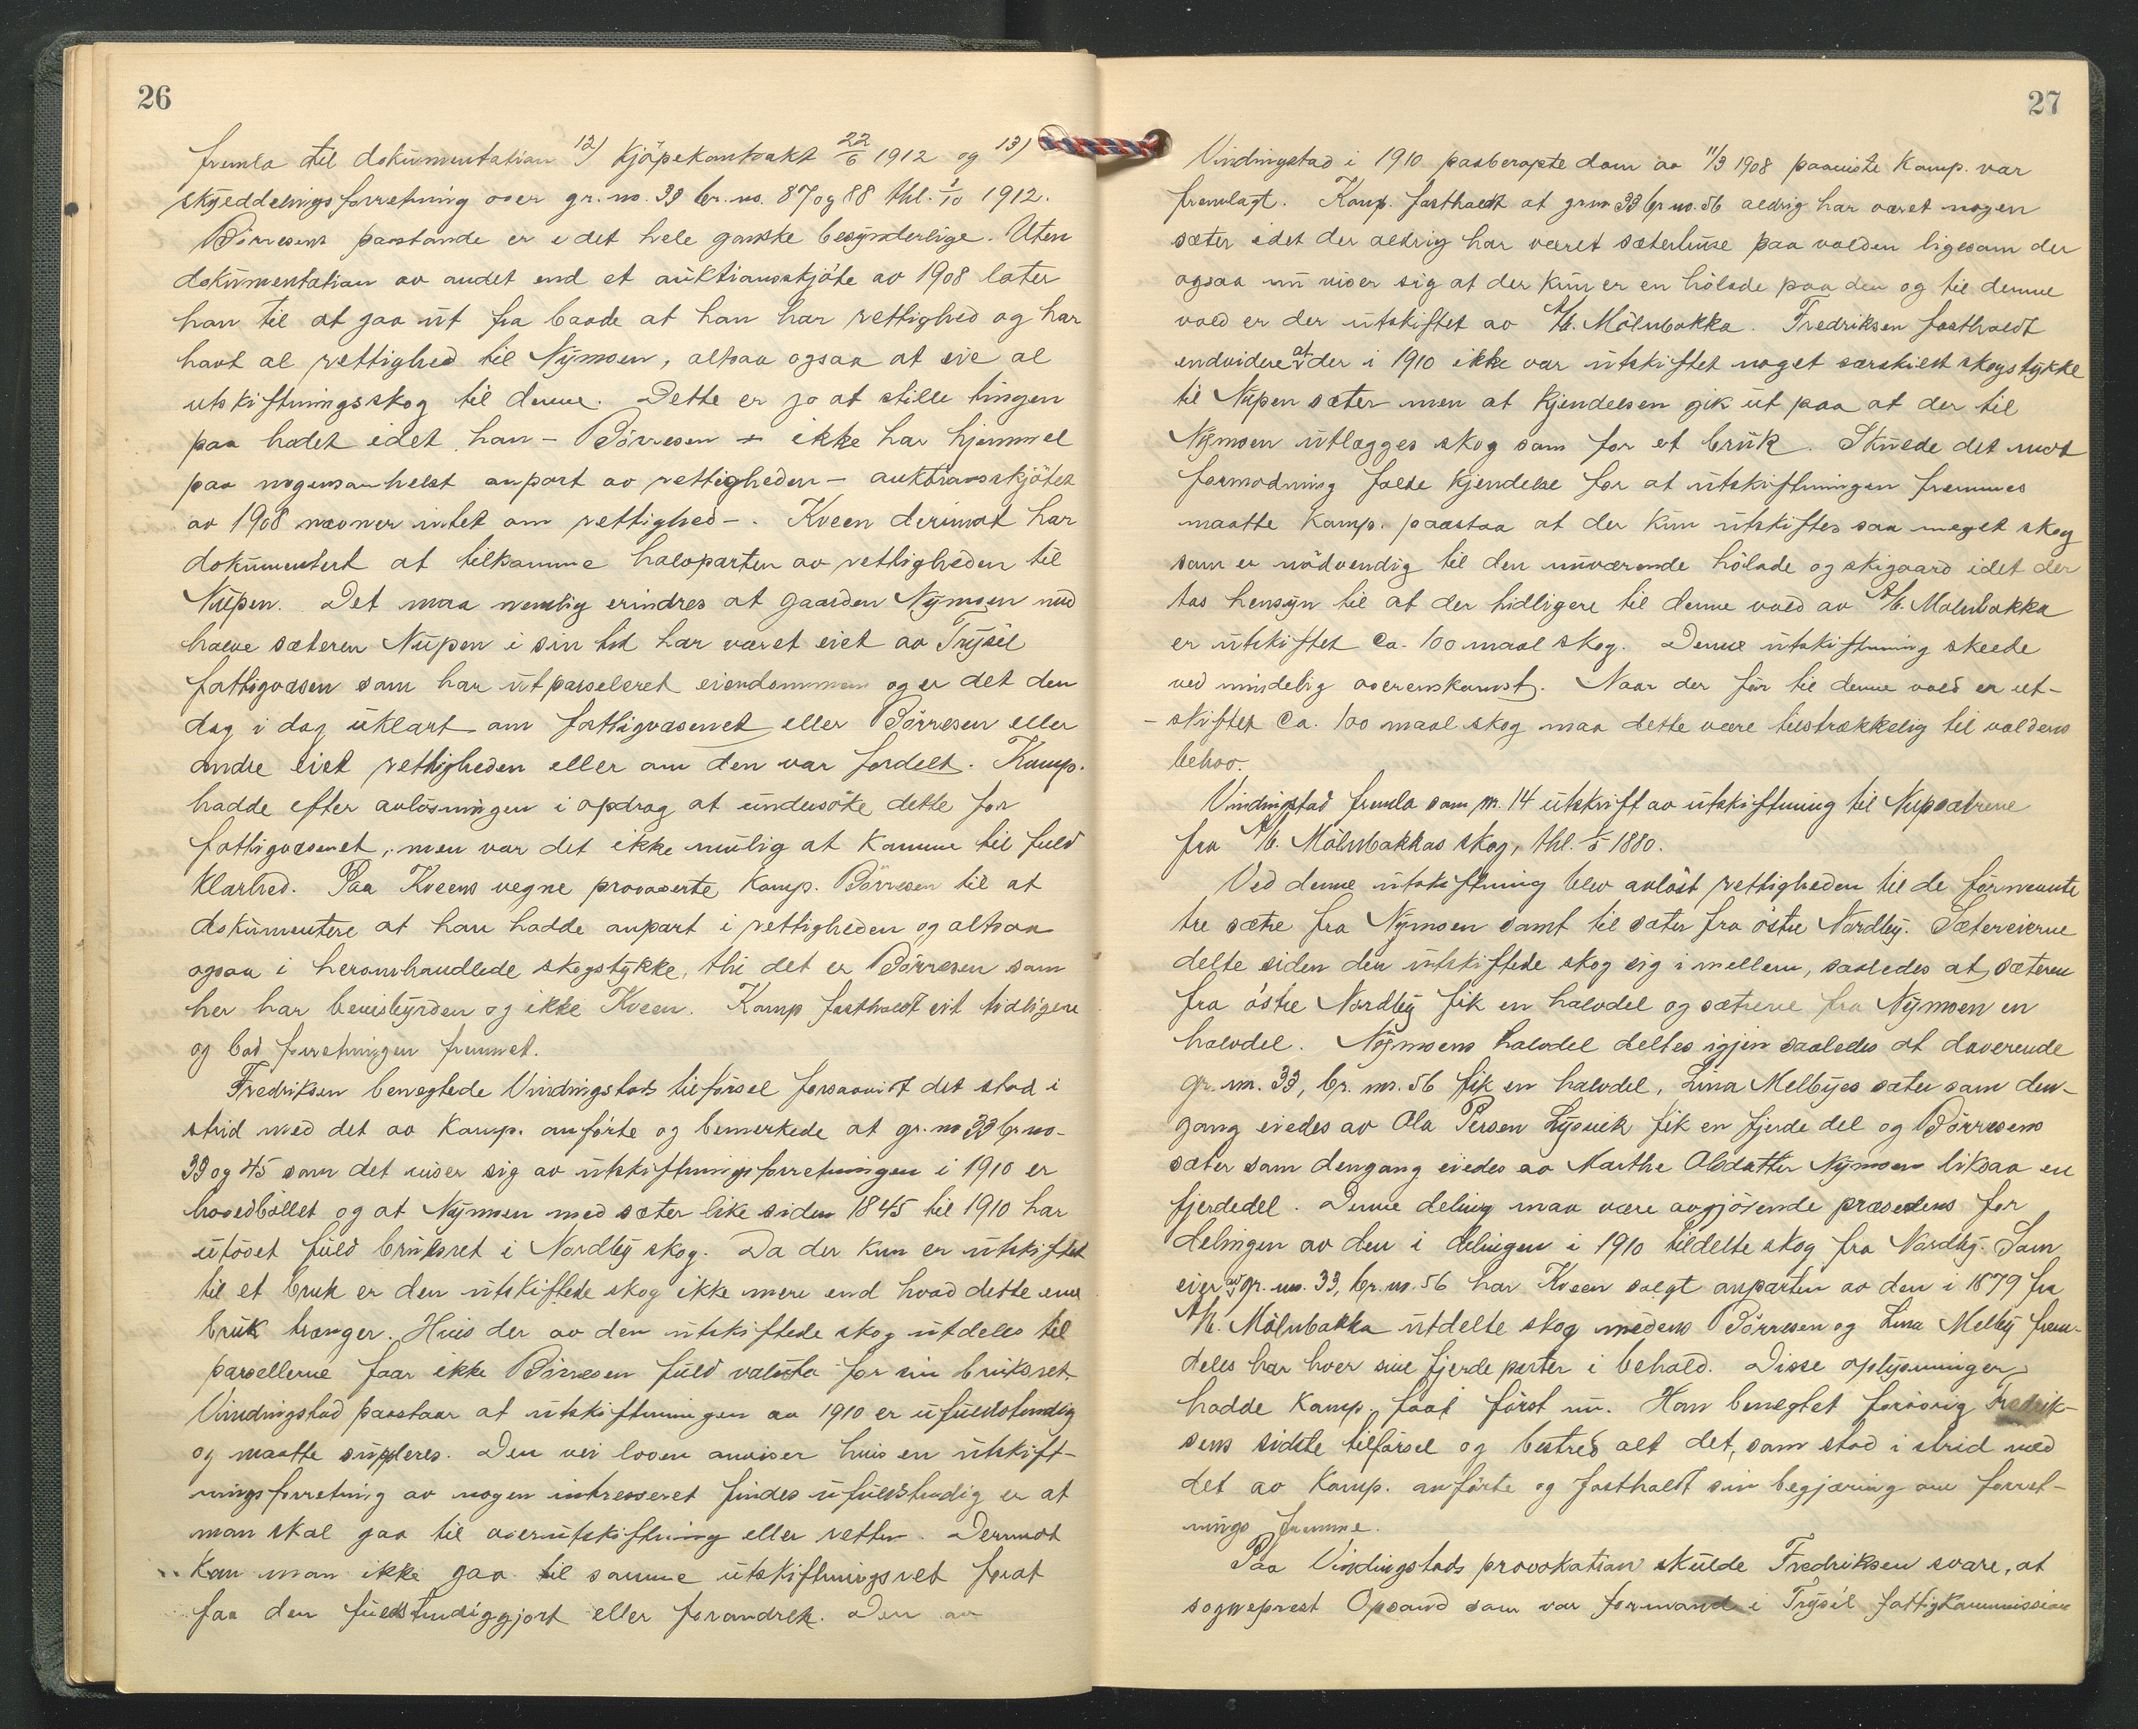 26
fremla til dokumentation 12) kjöpekontrakt 22/6 1912 og 13)
skylddelingsforretning over gr. no. 33 br. no. 87 og 88 thl. 2/10 1912.
Börresens paastande er i det hele ganske besynderlige. Uten
dokumentation av andet end et auktionsskjöte av 1908 later
han til at gaa ut fra baade at han har rettighed og har
havt al rettighed til Nymoen, altsaa ogsaa at eie al
utskiftningsskog til denne. Dette er jo at stille tingen
paa hodet idet han – Börresen – ikke har hjemmel
paa nogensomhelst anpart av rettigheden – auktionsskjötet
av 1908 nævner intet om rettighed –. Kveen derimot har
dokumentert at tilkomme halvparten av rettigheden til
Nupen. Det maa nemlig erindres at gaarden Nymoen med
halve sæteren Nupen i sin tid har været eiet av Trysil
fattigvæsen som har utparseleret eiendommen og er det den
dag i dag uklart om fattigvæsenet eller Börresen eller
andre eiet rettigheden eller om den var fordelt. Komp.
hadde efter avlösningen i opdrag at undersöke dette for
fattigvæsenet, men var det ikke mulig at komme til fuld
klarhed. Paa Kveens vegne provoserte Komp. Börresen til at
dokumentere at han hadde anpart i rettigheden og altsaa
ogsaa i heromhandlede skogstykke, thi det er Börresen som
her har bevisbyrden og ikke Kveen. Komp fastholdt sit tidligere
og bad forretningen fremmet.
Fredriksen benegtede Vindingstads tilförsel forsaavidt det stod i
strid med det av Komp. anförte og bemerkede at gr. no 33 br no-
33 og 45 som det viser sig av utskiftningsforretningen i 1910 er
hovedböllet og at Nymoen med sæter like siden 1845 til 1910 har
utövet fuld bruksret i Nordby skog. Da der kun er utskiftet
til et bruk er den utskiftede skog ikke mere end hvad dette ene
bruk trænger. Hvis der av den utskiftede skog utdeles til
parsellerne faar ikke Börresen fuld valuta for sin bruksret.
Vindingstad paastaar at utskiftningen av 1910 er ufuldstendig
og maatte supleres. Den vei loven anviser hvis en utskift-
ningsforretning av nogen intresseret findes ufuldstendig er at
man skal gaa til overutskiftning eller retten. Derimot
kan man ikke gaa til samme utskiftningsret forat
faa den fuldstendiggjort eller forandret. Den av
27
Vindingstad i 1910 paaberopte dom av 11/3 1908 paaviste Komp. var
fremlagt. Komp. fastholdt at grno 33 br no. 56 aldrig har været nogen
sæter idet der aldrig har været sæterhuse paa volden ligesom der
ogsaa nu viser sig at der kun er en hölade paa den og til denne
vold er der utskiftet av A/B. Mölnbakka. Fredriksen fastholdt
endvidere at der i 1910 ikke var utskiftet noget særskilt skogstykke
til Nupen sæter men at kjendelsen gik ut paa at der til
Nymoen utlægges skog som for et bruk. Skulde det mot
formodning falde kjendelse for at utskiftningen fremmes
maatte Komp. paastaa at der kun utskiftes saa meget skog
som er nödvendig til den nuværende hölade og skigaard idet der
tas hensyn til at der tidligere til denne vold av A/B. Molnbakka
er utskiftet ca. 100 maal skog. Denne utskiftning skeede
ved mindelig overenskomst. Naar der för til denne vold er ut-
- skiftet ca. 100 maal skog maa dette være tilstrækkelig til voldens
behov.
Vindingstad fremla som nr. 14 utskrift av utskiftning til Nupsætrene
fra A/B. Mölnbakkas skog, thl. 1/5 1880.
Ved denne utskiftning blev avlöst rettigheden til de förnevnte
tre sætre fra Nymoen samt til sæter fra östre Nordby. Sætereierne
delte siden den utskiftede skog sig i mellem, saaledes at sæteren
fra östre Nordby fik en halvdel og sætrene fra Nymoen en
halvdel. Nymoens halvdel deltes igjen saaledes at daværende
gr. no. 33, br. no. 56 fik en halvdel, Lina Melbyes sæter som den-
gang eiedes av Ola Persen Lysvik fik en fjerde del og Börresens
sæter som dengang eiedes av Marthe Olsdatter Nymoen liksaa en
fjerdedel. Denne deling maa være avgjörende præsedens for
delingen av den i delingen i 1910 tildelte skog fra Nordby. Som
eier av gr. no. 33, br. no. 56 har Kveen solgt anparten av den i 1879 fra
A/B. Mölnbakka utdelte skog medens Börresen og Lina Melby frem-
deles har hver sine fjerdeparter i behold. Disse oplysninger
hadde Komp. faat först nu. Han benegtet forövrig Fredrik-
sens sidste tilförsel og bestred alt det, som stod i strid med
det av Komp. anförte og fastholdt sin begjæring om forret-
nings fremme.
Paa Vindingstads provokation skulde Fredriksen svare, at
sogneprest Opsand som var formand i Trysil fattigkommission